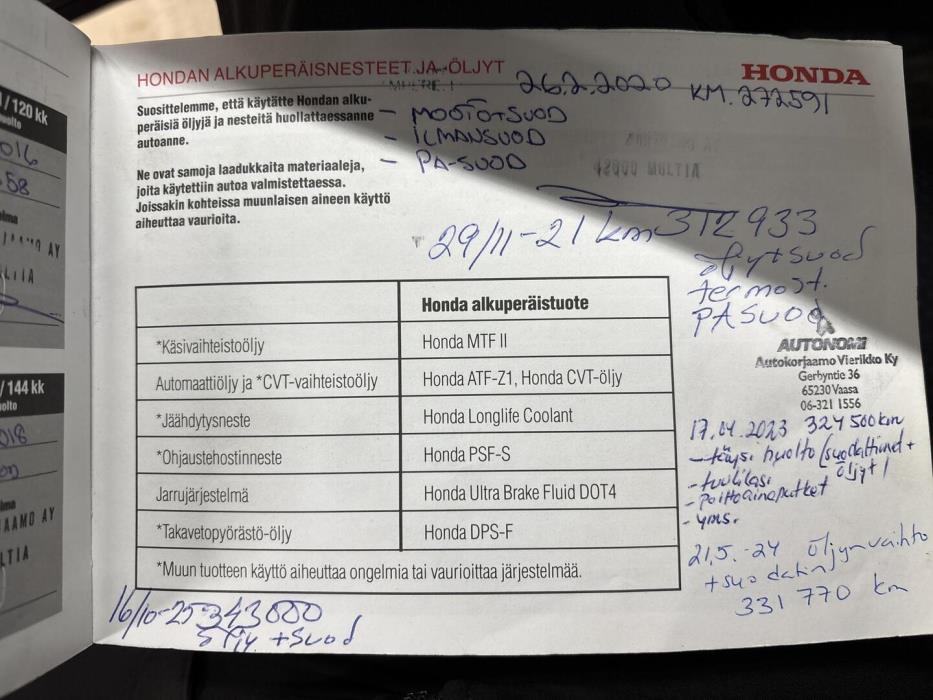 HONDAN ALKUPERÄISNESTEET JA -ÖLJYT
HONDA
26.2.2020 KM. 272591
Suosittelemme, että käytätte Hondan alku-
peräisiä öljyjä ja nesteitä huollattaessanne
autoanne.
- MOOTÖ+SUOD
- ILMANSUOD
- PA-SUOD
Ne ovat samoja laadukkaita materiaaleja,
joita käytettiin autoa valmistettaessa.
Joissakin kohteissa muunlaisen aineen käyttö
aiheuttaa vaurioita.
42600 MULTIA
29/11-21 km 312 933
öljyt+suod
termost.
PA SUOD
Honda alkuperäistuote
*Käsivaihteistoöljy Honda MTF II
Automaattiöljy ja *CVT-vaihteistoöljy Honda ATF-Z1, Honda CVT-öljy
*Jäähdytysneste Honda Longlife Coolant
*Ohjaustehostinneste Honda PSF-S
Jarrujärjestelmä Honda Ultra Brake Fluid DOT4
*Takavetopyörästö-öljy Honda DPS-F
*Muun tuotteen käyttö aiheuttaa ongelmia tai vaurioittaa järjestelmää.
AUTONOMI
Autokorjaamo Vierikko Ky
Gerbyntie 36
65230 Vaasa
06-321 1556
17.04.2023 324 500km
- täysi huolto (suodattimet +
öljyt)
- tuulilasi
- Polttoaineputket
- yms.
21.5.-24 öljynvaihto
+suodatin
331 770 km
16/10-25 343000
öljy +suod
/ 120 kk
016
58
AMO AY
LTIA
/ 144 kk
018
AAMO AY
LTIA